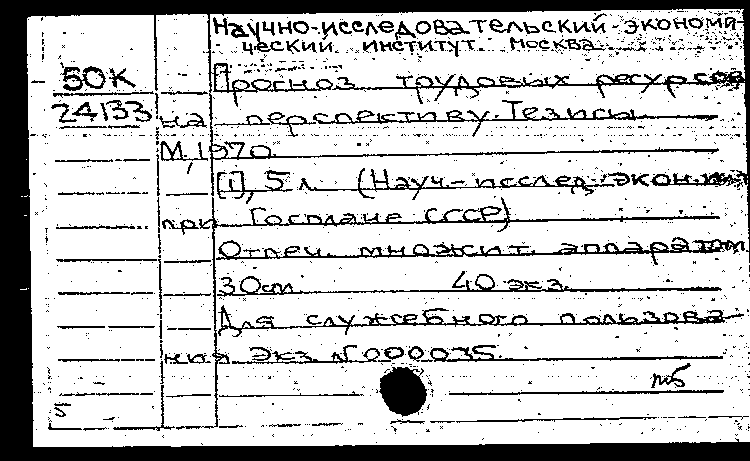 Научно-исследовательский экономи-
ческий институт. Москва
50К
Прогноз трудовых ресурсов
24133
на перспективу. Тезисы.
М., 1970.
[1], 5 л. (Науч.-исслед. экон. ин-т
при Госплане СССР)
Отпеч. множит. аппаратом
30см. 40 экз.
Для служебного пользова-
ния. Экз. N 000035.